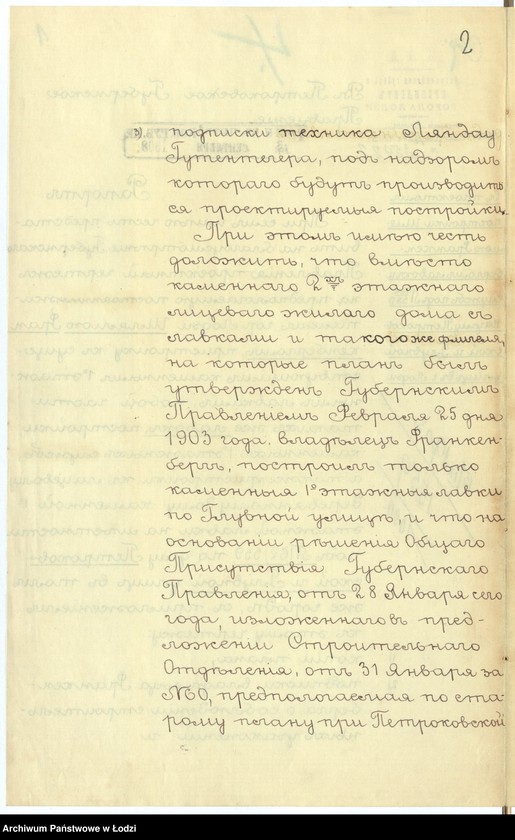 2
з). подписки техника Ляндау
Гутентегера, подъ надзоромъ
котораго будутъ производить
ся проектируемыя постройки.
При этомъ имѣю честь
доложить, что вмѣсто
каменнаго 2хъ этажнаго
лицеваго жилого дома съ
лавками и такого же флигеля,
на которые планъ былъ
утвержденъ Губернскимъ
Правленіемъ Февраля 25 дня
1903 года, владѣлецъ Франкен-
бергъ, построилъ только
каменныя 1о этажныя лавки
по Главной улицѣ, и что на
основаніи рѣшенія Общаго
Присутствія Губернскаго
Правленія, отъ 28 Января сего
года, изложеннаго въ пред-
ложеніи Строительнаго
Отдѣленія, отъ 31 Января за
№0, предполагаемая по ста-
рому плану при Петроковской
Archiwum Państwowe w Łodzi